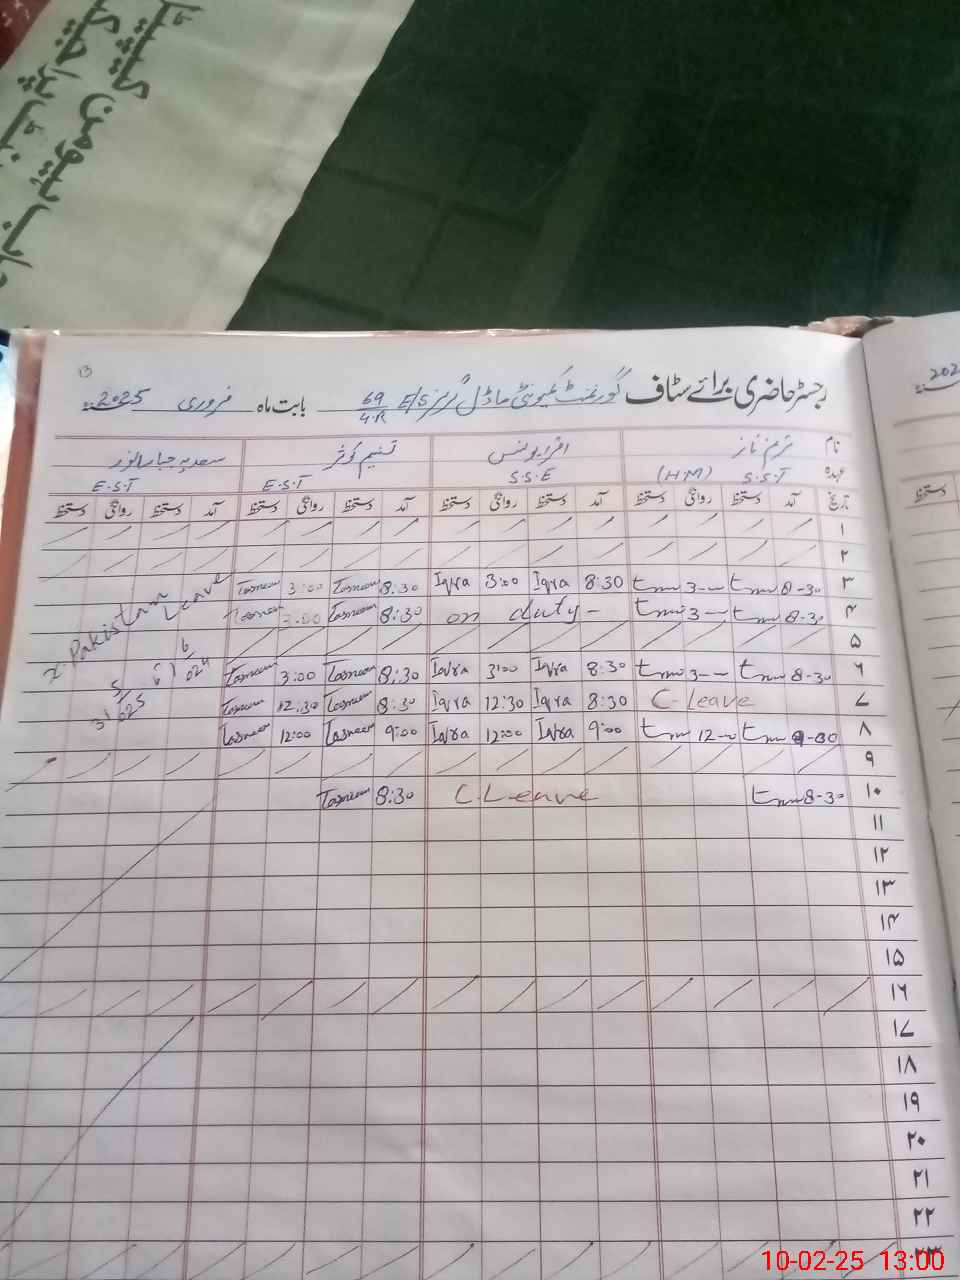 13
رجسٹر حاضری برائے سٹاف گورنمنٹ کمیونٹی ماڈل گرلز E/S 69/4.R بابت ماہ فروری 2025ء
نام ترنم ناز اقراء یونس تسنیم کوثر سعدیہ جبار انور
عہدہ S.S.T (HM) S.S.E E.S.T E.S.T
تاریخ آمد دستخط روانگی دستخط آمد دستخط روانگی دستخط آمد دستخط روانگی دستخط آمد دستخط روانگی دستخط
۱
۲
۳ 8-30 tnn 3-- tnn 8:30 Iqra 3:00 Iqra 8:30 Tasneem 3:00 Tasneem
۴ 8-30 tnn 3-- tnn on duty- 8:30 Tasneem 3:00 Tasneem
X-Pakistan Leave
۵
۶ 8-30 tnn 3-- tnn 8:30 Iqra 3:00 Iqra 8:30 Tasneem 3:00 Tasneem
۷ C-Leave 8:30 Iqra 12:30 Iqra 8:30 Tasneem 12:30 Tasneem
۸ 9-30 tnn 12-0 tnn 9:00 Iqra 12:00 Iqra 9:00 Tasneem 12:00 Tasneem
۹
۱۰ 8-30 tnn C.Leave 8:30 Tasneem
۱۱
۱۲
۱۳
۱۴
۱۵
۱۶
۱۷
۱۸
۱۹
۲۰
۲۱
۲۲
۲۳
10-02-25 13:00